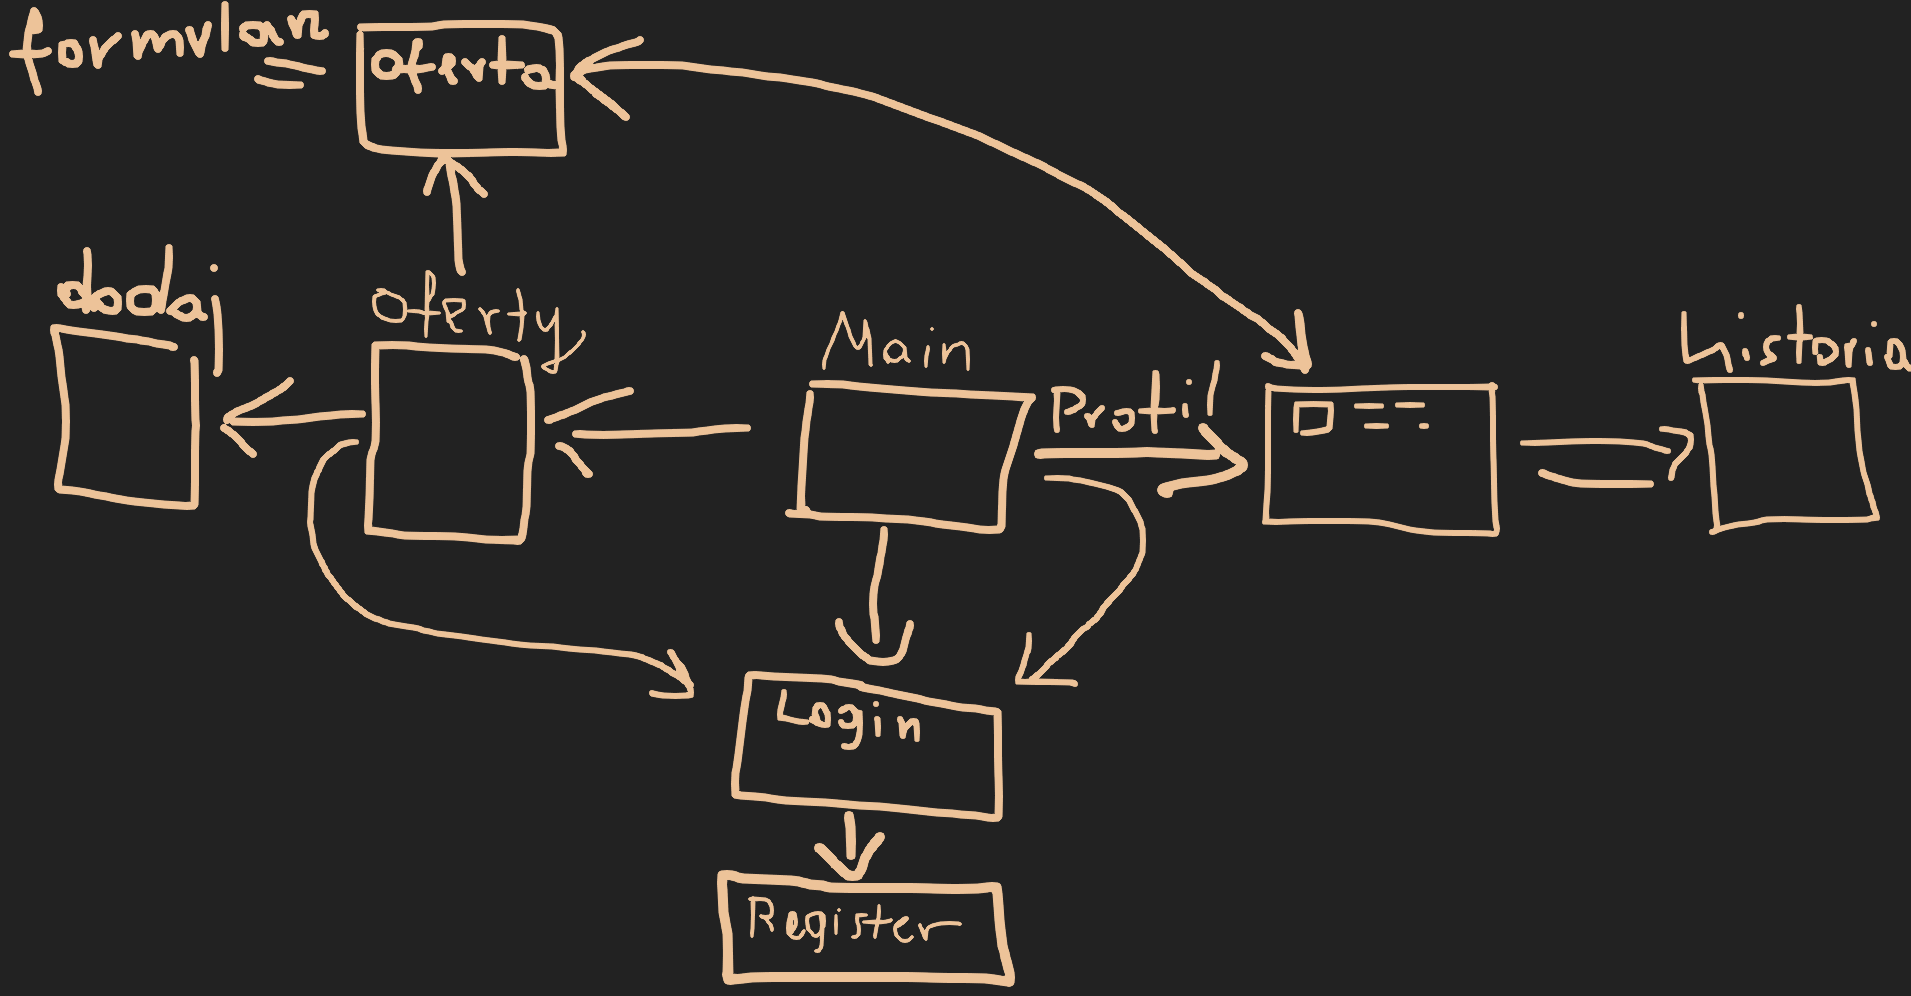 formularz
oferta
dodaj
oferty
Main
Profil
historia
Login
Register